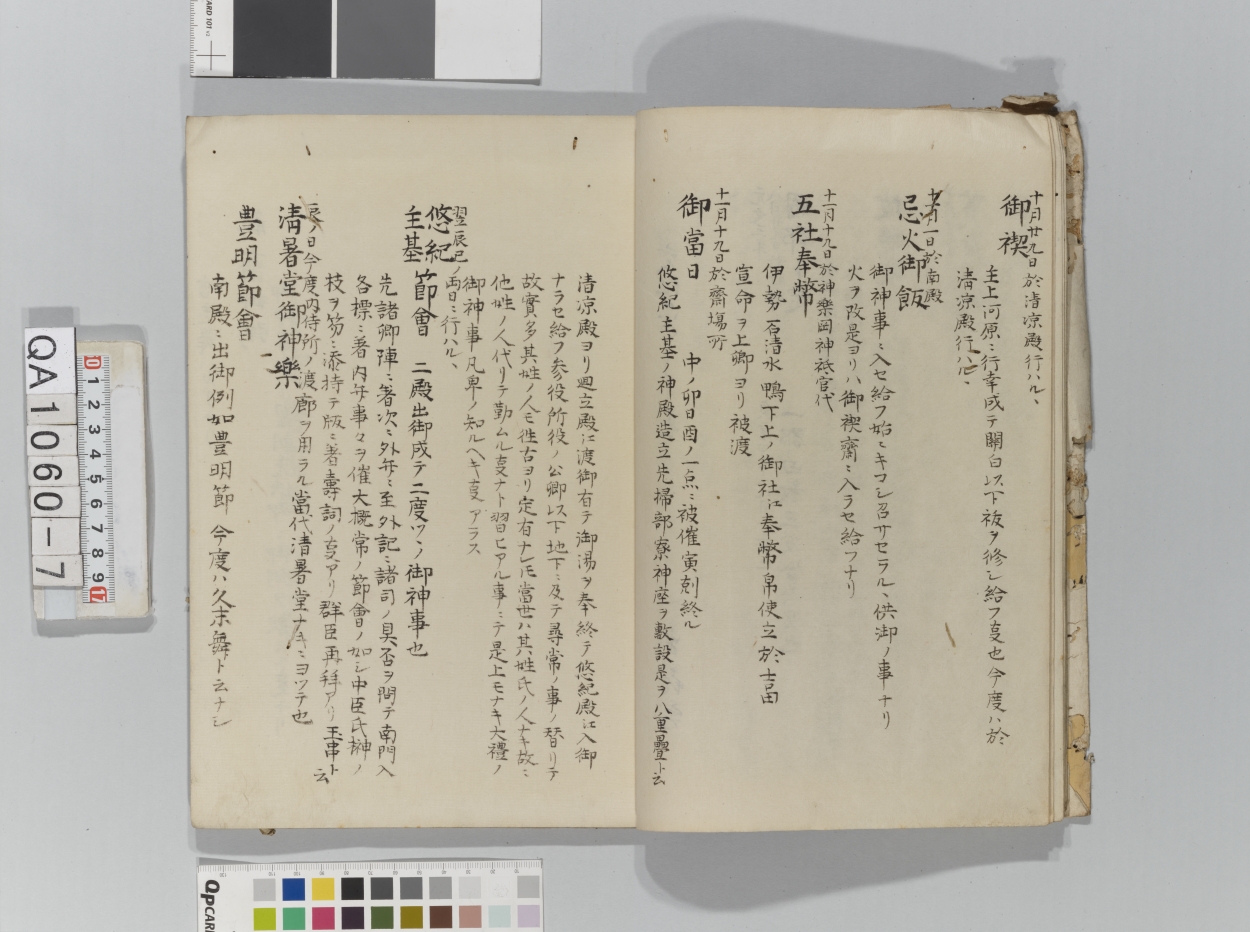 十月廿九日於清凉殿行ハル、
御禊
主上河原ニ行幸成テ關白以下祓ヲ修シ給フ㕝也今度ハ於
清凉殿行ハル、
十一月一日於南殿
忌火御飯
御神事ニ入セ給フ始ニキコシ召サセラル、供御ノ事ナリ
火ヲ改是ヨリハ御禊齋ニ入ラセ給フナリ
十一月十九日於神樂岡神祇官代
五社奉幣
伊勢石清水鴨下上ノ御社江奉幣帛使立於吉田
宣命ヲ上卿ヨリ被渡
十一月十九日於齋塲所
御當日 中ノ卯日酉ノ一点ニ被催寅刻終ル
悠紀主基ノ神殿造立先掃部寮神座ヲ敷設是ヲ八重疊ト云
清凉殿ヨリ廻立殿江渡御有テ御湯ヲ奉終テ悠紀殿江入御
ナラセ給フ参役所役ノ公卿以下地下ニ及テ尋常ノ事ノ替リテ
故實多其姓ノ人モ徃古ヨリ定有ナレ𪜈當世ハ其姓氏ノ人ナキ故ニ
他姓ノ人代リテ勤ムル㕝ナト習ヒアル事ニテ是上モナキ大禮ノ
御神事凡卑ノ知ルヘキ㕝アラス
翌辰巳ノ両日ニ行ハル、
悠紀
主基
節會 二殿出御成テ二度ツヽノ御神事也
先諸卿陣ニ著次ニ外弁ニ至外記ニ諸司ノ具否ヲ問テ南門入
各標ニ著内弁事々ヲ催大概常ノ節會ノ如シ中臣氏榊ノ
枝ヲ笏ニ添持テ版ニ著壽詞ノ㕝アリ群臣再拜アリ玉串ト云
辰ノ日今度内侍所ノ渡廊ヲ用ラル當代清暑堂ナキニヨツテ也
清暑堂御神樂
豊明節會
南殿ニ出御例如豊明節 今度ハ久米舞ト云ナシ
QA1060-7